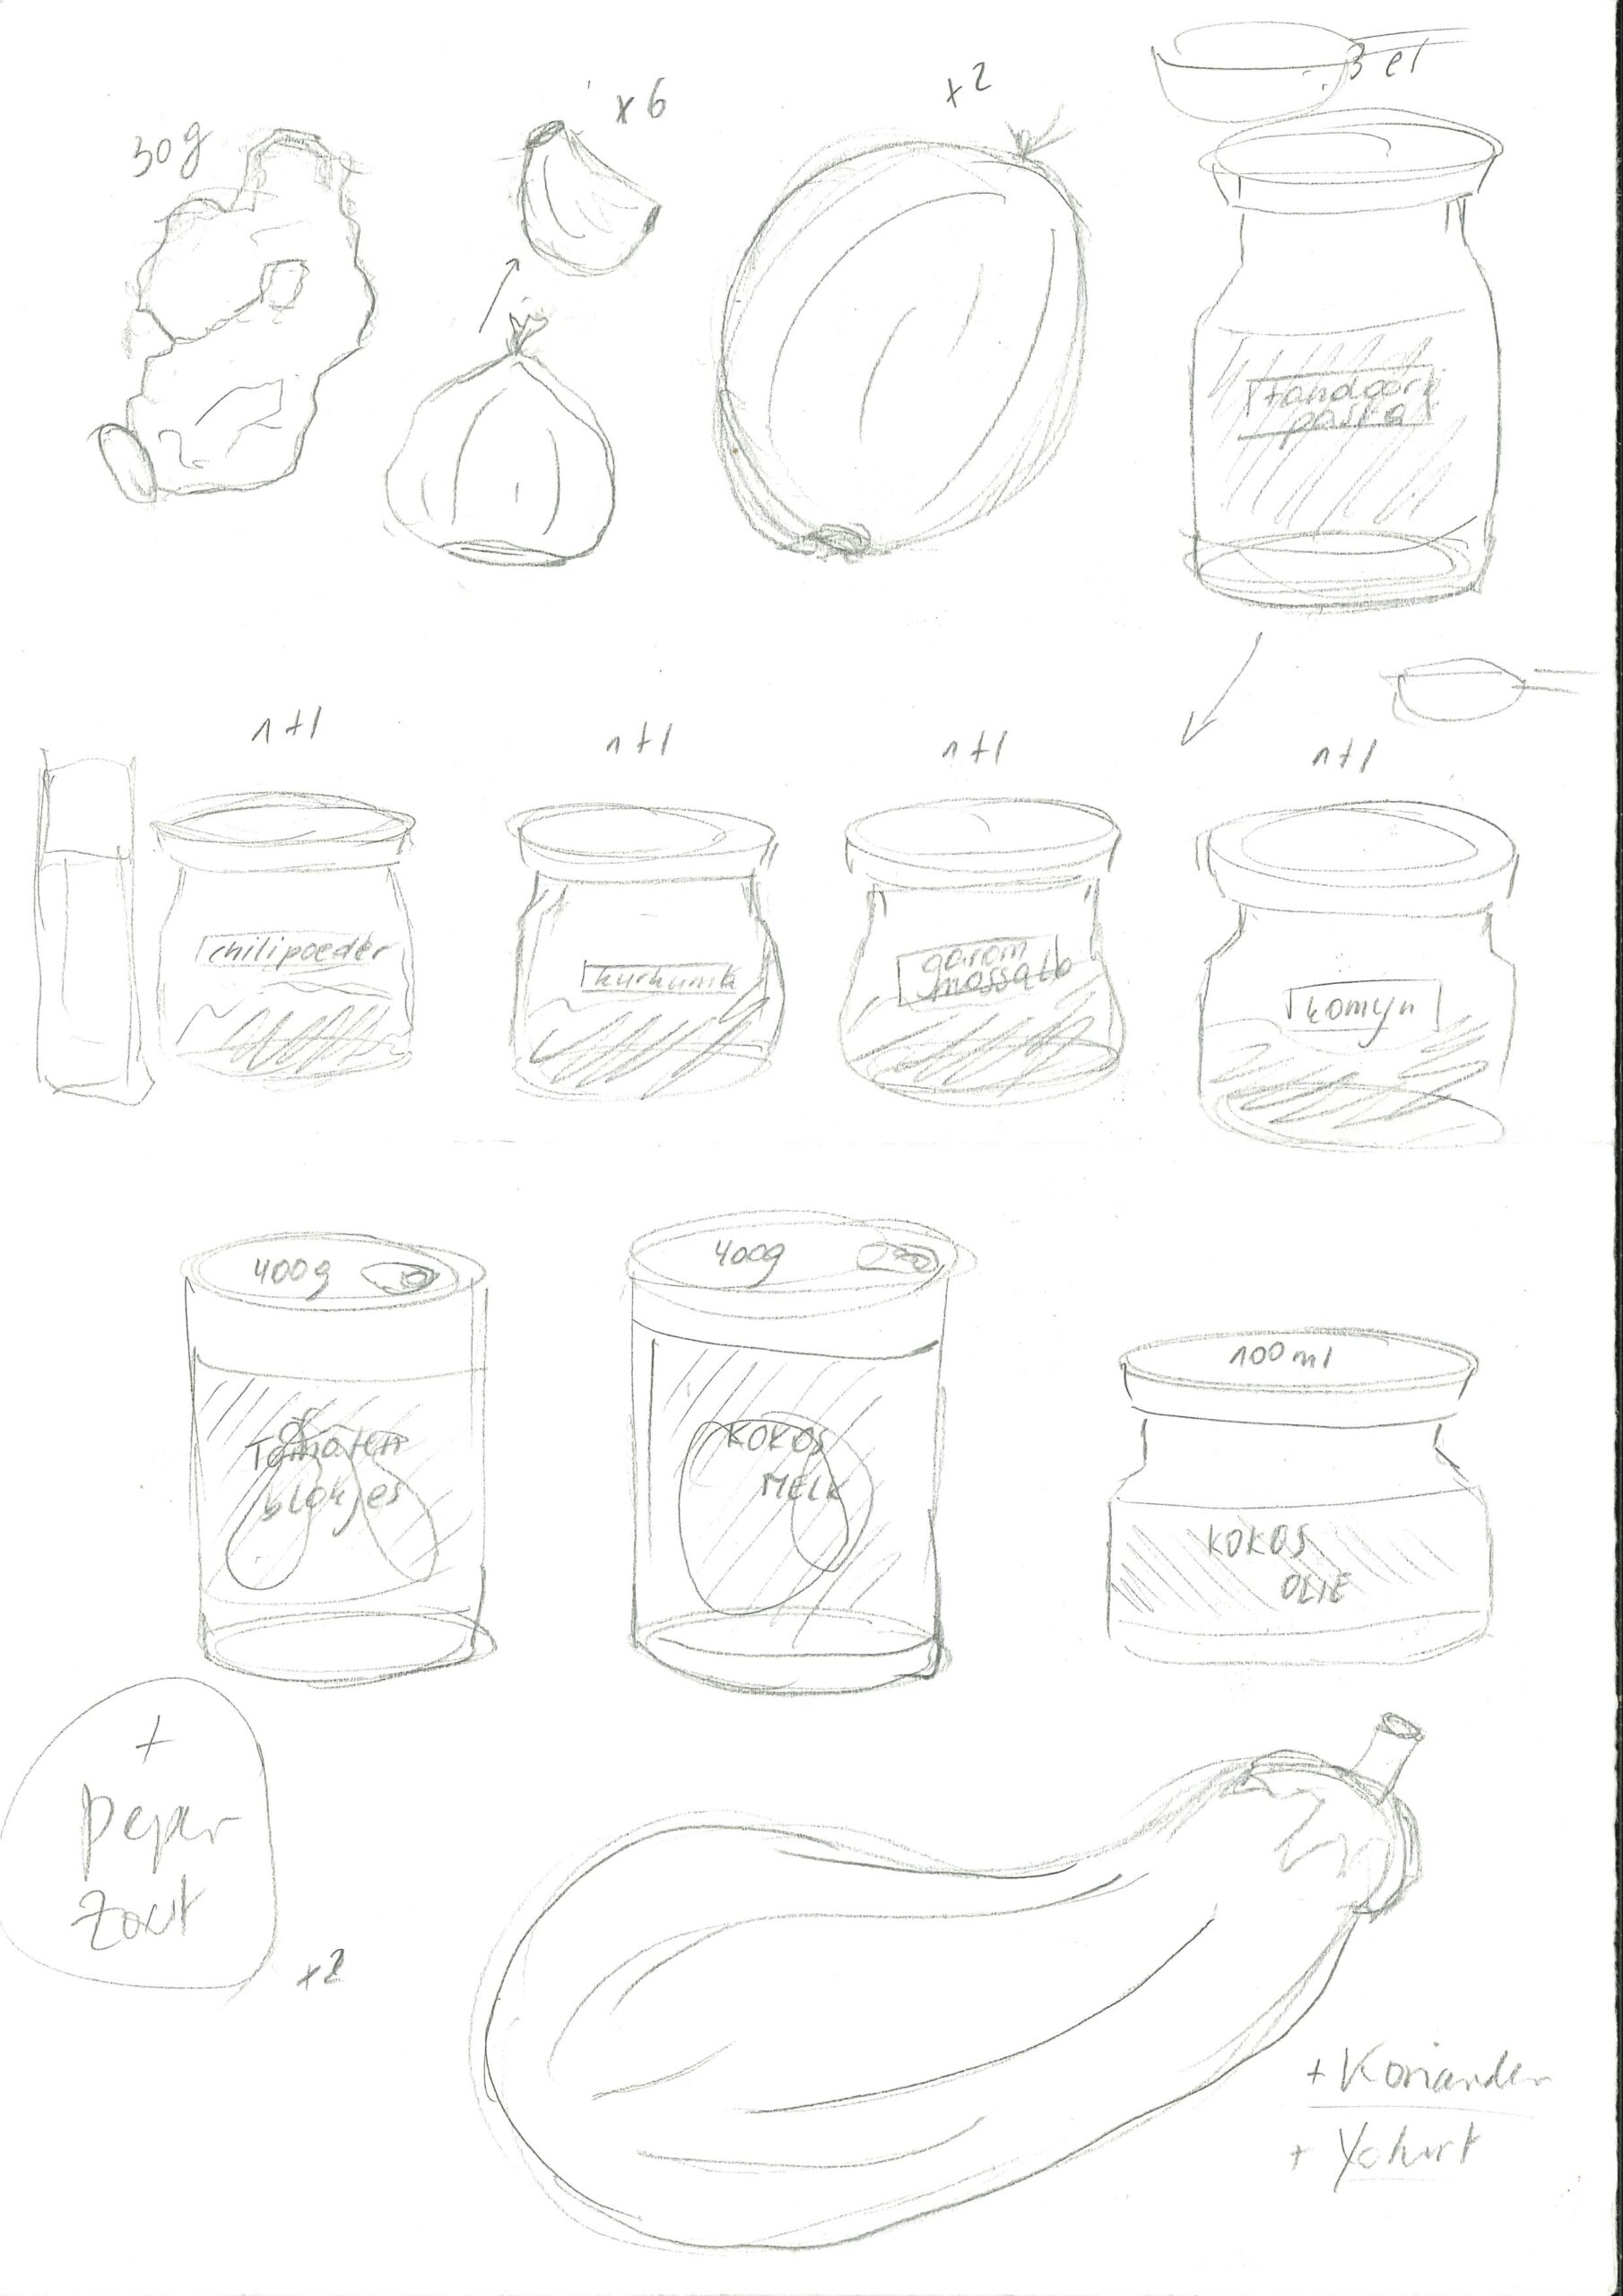 30g
x 6
x2
3 el
tandoori
pasta
1 tl
1 tl
1 tl
1 tl
chilipoeder
kurkuma
garam
massala
komyn
400g
400g
100 ml
Tomaten
blokjes
KOKOS
MELK
KOKOS
OLIE
+
peper
zout
x2
+ Koriander
+ Yohurt